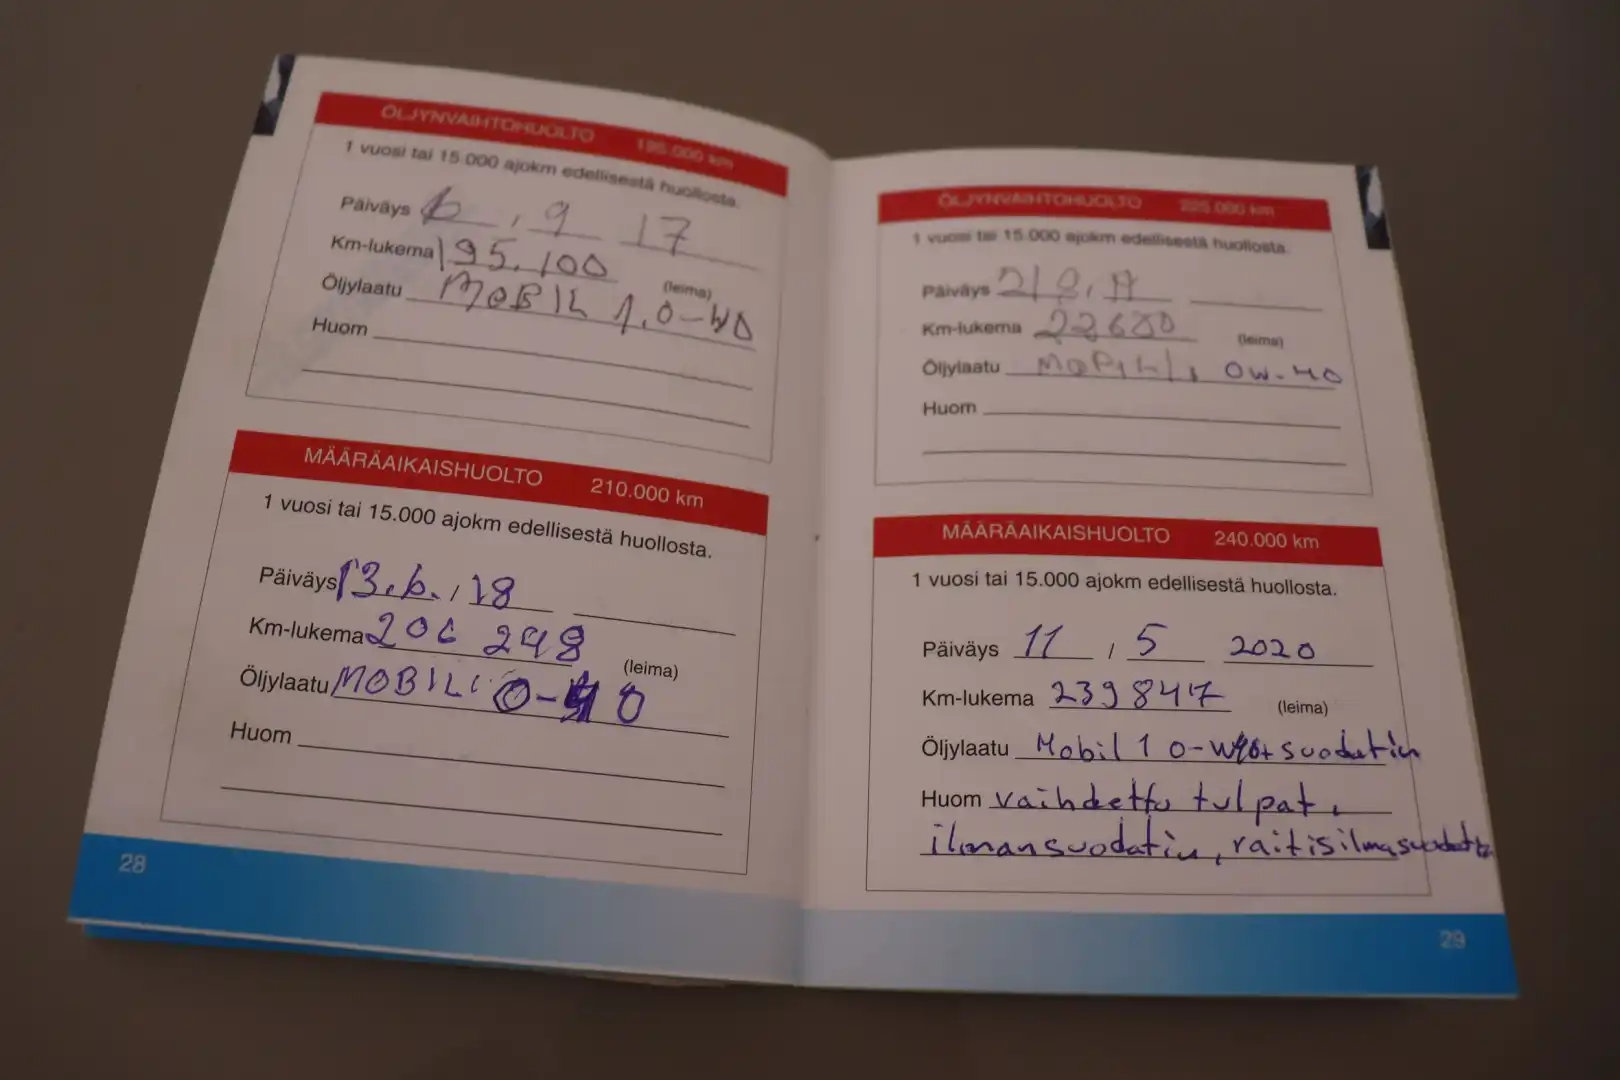 ÖLJYNVAIHTOHUOLTO 195.000 km
1 vuosi tai 15.000 ajokm edellisestä huollosta.
Päiväys 6 , 9 17
Km-lukema 195.100
(leima)
Öljylaatu MOBIL 1.0-40
Huom
MÄÄRÄAIKAISHUOLTO 210.000 km
1 vuosi tai 15.000 ajokm edellisestä huollosta.
Päiväys 13.6. / 18
Km-lukema 206 298
(leima)
Öljylaatu MOBIL 0-40
Huom
28
ÖLJYNVAIHTOHUOLTO 225.000 km
1 vuosi tai 15.000 ajokm edellisestä huollosta.
Päiväys
Km-lukema 22600
(leima)
Öljylaatu 0W-40
Huom
MÄÄRÄAIKAISHUOLTO 240.000 km
1 vuosi tai 15.000 ajokm edellisestä huollosta.
Päiväys 11 / 5 2020
Km-lukema 239847
(leima)
Öljylaatu Mobil 1 0-W40+suodatin
Huom vaihdettu tulpat,
ilmansuodatin, raitisilmasuodatin
29